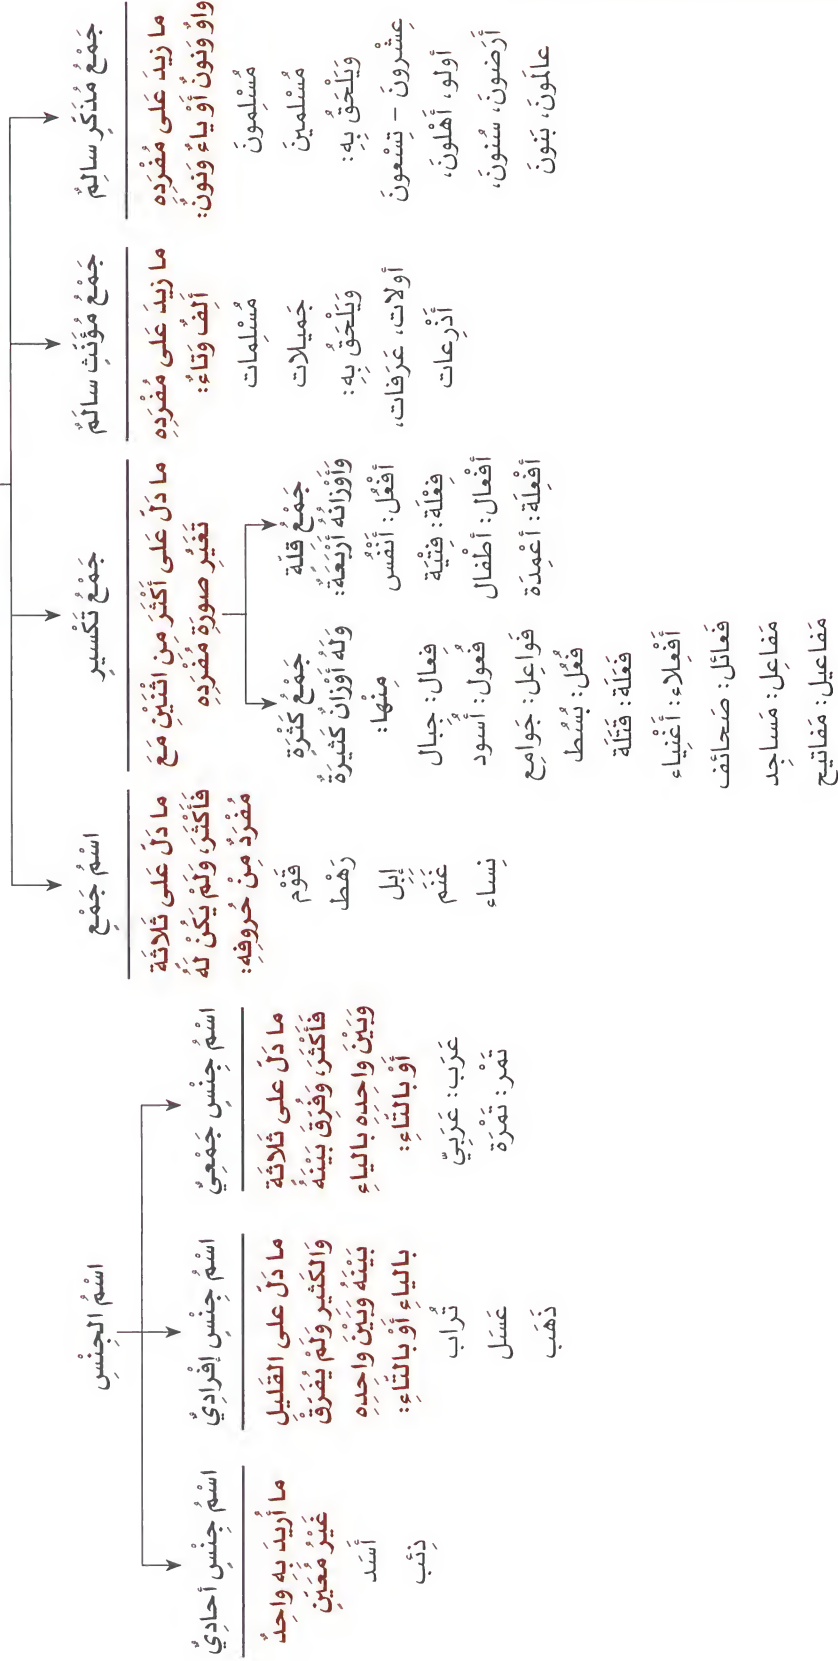 جَمْعُ مُذَكَّرٍ سالِمٌ
ما زيدَ عَلى مُفْرَدِهِ
واوٌ وَنونٌ أَوْ ياءٌ وَنونٌ:
مُسْلِمونَ
مُسْلِمينَ
وَيَلْحَقُ بِهِ:
عِشْرونَ – تِسْعونَ
أولو، أَهْلونَ،
أَرَضونَ، سُنونَ،
عالَمونَ، بَنونَ
جَمْعُ مُؤَنَّثٍ سالِمٌ
ما زيدَ عَلى مُفْرَدِهِ
أَلِفٌ وَتاءٌ:
مُسْلِمات
جَميلات
وَيَلْحَقُ بِهِ:
أولات، عَرَفات،
أَذْرِعات
جَمْعُ تَكْسيرٍ
ما دَلَّ عَلى أَكْثَرَ مِن اثْنَيْنِ مَعَ
تَغَيُّرِ صورَةِ مُفْرَدِهِ
جَمْعُ قِلَّة
وَأَوْزانُهُ أَرْبَعَةٌ:
أَفْعُل: أَنْفُس
فِعْلَة: فِتْيَة
أَفْعال: أَطْفال
أَفْعِلَة: أَعْمِدَة
جَمْعُ كَثْرَة
وَلَهُ أَوْزانٌ كَثيرَةٌ
مِنْها:
فِعال: جِبال
فُعول: أُسود
فَواعِل: جَوامِع
فُعُل: بُسُط
فَعَلَة: قَتَلَة
أَفْعِلاء: أَغْنِياء
فَعائل: صَحائف
مَفاعِل: مَساجِد
مَفاعيل: مَفاتيح
اسْمُ جَمْعٍ
ما دَلَّ عَلى ثَلاثَة
فَأَكْثَرَ، وَلَمْ يَكُنْ لَهُ
مُفْرَدٌ مِنْ حُروفِهِ:
قَوْم
رَهْط
إِبِل
غَنَم
نِساء
اسْمُ الجِنْسِ
اسْمُ جِنْسٍ جَمْعِيٌّ
ما دَلَّ عَلى ثَلاثَة
فَأَكْثَرَ، وَفُرِّقَ بَيْنَهُ
وَبَيْنَ واحِدِهِ بالياءِ
أَوْ بالتّاءِ:
عَرَب: عَرَبِيّ
تَمْر: تَمْرَة
اسْمُ جِنْسٍ إِفْرادِيٌّ
ما دَلَّ عَلى القَليلِ
وَالكَثيرِ وَلَمْ يُفَرَّقْ
بَيْنَهُ وَبَيْنَ واحِدِهِ
بالياءِ أَوْ بالتّاءِ:
تُراب
عَسَل
ذَهَب
اسْمُ جِنْسٍ أحادِيٌّ
ما أُريدَ بِهِ واحِدٌ
غَيْرُ مُعَيَّنٍ
أَسَد
ذِئب